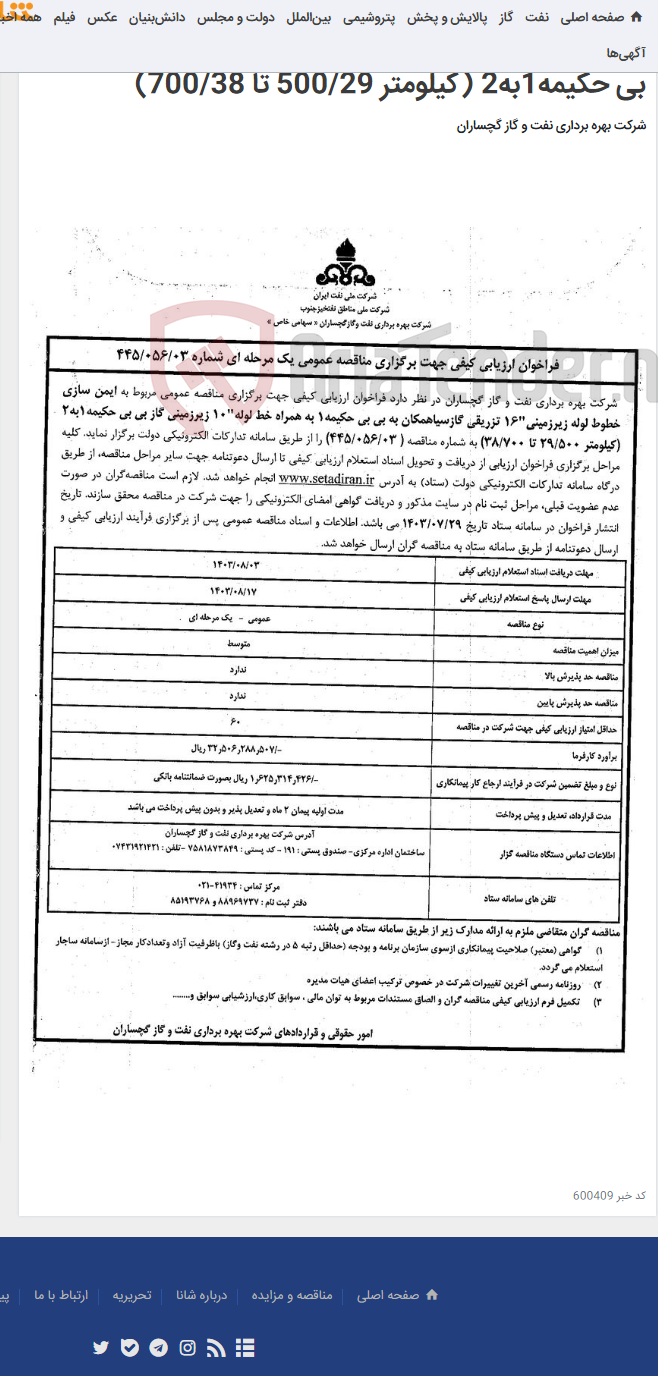 صفحه اصلی نفت گاز پالایش و پخش پتروشیمی بین‌الملل دولت و مجلس دانش‌بنیان عکس فیلم همه اخبا
آگهی‌ها
بی حکیمه1به2 (کیلومتر 500/29 تا 700/38)
شرکت بهره برداری نفت و گاز گچساران
شرکت ملی نفت ایران
شرکت ملی مناطق نفتخیزجنوب
شرکت بهره برداری نفت وگازگچساران « سهامی خاص »
AriaTender.n
فراخوان ارزیابی کیفی جهت برگزاری مناقصه عمومی یک مرحله ای شماره ۴۴۵/۰۵۶/۰۳
شرکت بهره برداری نفت و گاز گچساران در نظر دارد فراخوان ارزیابی کیفی جهت برگزاری مناقصه عمومی مربوط به ایمن سازی
خطوط لوله زیرزمینی"۱۶ تزریقی گازسیاهمکان به بی بی حکیمه۱ به همراه خط لوله"۱۰ زیرزمینی گاز بی بی حکیمه۱به۲
(کیلومتر ۲۹/۵۰۰ تا ۳۸/۷۰۰) به شماره مناقصه ( ۴۴۵/۰۵۶/۰۳) را از طریق سامانه تدارکات الکترونیکی دولت برگزار نماید. کلیه
مراحل برگزاری فراخوان ارزیابی از دریافت و تحویل اسناد استعلام ارزیابی کیفی تا ارسال دعوتنامه جهت سایر مراحل مناقصه، از طریق
درگاه سامانه تدارکات الکترونیکی دولت (ستاد) به آدرس www.setadiran.ir انجام خواهد شد. لازم است مناقصه‌گران در صورت
عدم عضویت قبلی، مراحل ثبت نام در سایت مذکور و دریافت گواهی امضای الکترونیکی را جهت شرکت در مناقصه محقق سازند. تاریخ
انتشار فراخوان در سامانه ستاد تاریخ ۱۴۰۳/۰۷/۲۹ می باشد. اطلاعات و اسناد مناقصه عمومی پس از برگزاری فرآیند ارزیابی کیفی و
ارسال دعوتنامه از طریق سامانه ستاد به مناقصه گران ارسال خواهد شد.
مهلت دریافت اسناد استعلام ارزیابی کیفی ۱۴۰۳/۰۸/۰۳
مهلت ارسال پاسخ استعلام ارزیابی کیفی ۱۴۰۳/۰۸/۱۷
نوع مناقصه عمومی - یک مرحله ای .
میزان اهمیت مناقصه متوسط
مناقصه حد پذیرش بالا ندارد
مناقصه حد پذیرش پایین ندارد
حداقل امتیاز ارزیابی کیفی جهت شرکت در مناقصه ۶۰
برآورد کارفرما ۳۲٫۵۰۶٫۲۸۸٫۵۰۷/- ریال
نوع و مبلغ تضمین شرکت در فرآیند ارجاع کار پیمانکاری ۱٫۶۲۵٫۳۱۴٫۴۲۶/- ریال بصورت ضمانتنامه بانکی
مدت قرارداد، تعدیل و پیش پرداخت مدت اولیه پیمان ۲ ماه و تعدیل پذیر و بدون پیش پرداخت می باشد
اطلاعات تماس دستگاه مناقصه گزار آدرس شرکت بهره برداری نفت و گاز گچساران
ساختمان اداره مرکزی- صندوق پستی : ۱۹۱ - کد پستی : ۷۵۸۱۸۷۳۸۴۹ -تلفن : ۰۷۴۳۱۹۲۱۴۲۱
تلفن های سامانه ستاد مرکز تماس : ۴۱۹۳۴-۰۲۱
دفتر ثبت نام : ۸۸۹۶۹۷۳۷ و ۸۵۱۹۳۷۶۸
مناقصه گران متقاضی ملزم به ارائه مدارک زیر از طریق سامانه ستاد می باشند:
۱) گواهی (معتبر) صلاحیت پیمانکاری ازسوی سازمان برنامه و بودجه (حداقل رتبه ۵ در رشته نفت وگاز) باظرفیت آزاد وتعدادکار مجاز- ازسامانه ساجار
استعلام می گردد.
۲) روزنامه رسمی آخرین تغییرات شرکت در خصوص ترکیب اعضای هیات مدیره
۳) تکمیل فرم ارزیابی کیفی مناقصه گران و الصاق مستندات مربوط به توان مالی ، سوابق کاری،ارزشیابی سوابق و........
امور حقوقی و قراردادهای شرکت بهره برداری نفت و گاز گچساران
کد خبر 600409
صفحه اصلی مناقصه و مزایده درباره شانا تحریریه ارتباط با ما پی